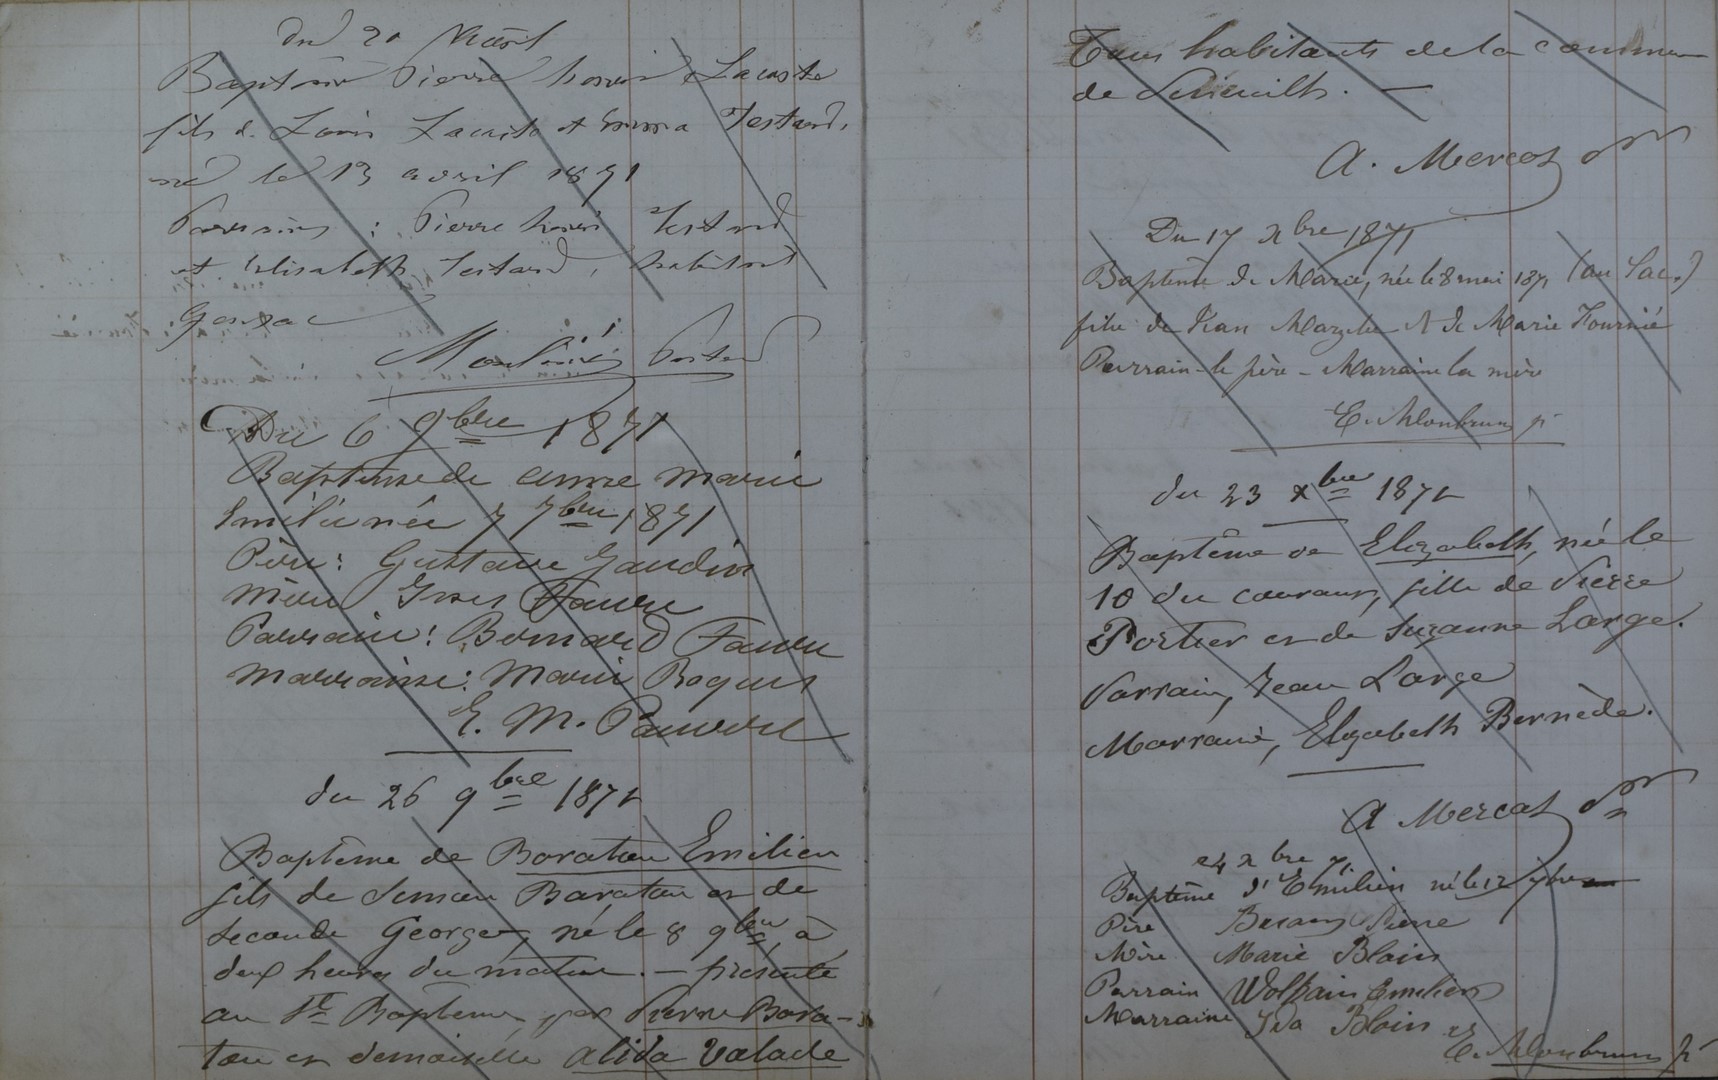 du 20 Avril
Baptême Pierre Louis Lacoste
fils de Louis Lacoste et Emma Testard,
né le 13 avril 1871
Parrains : Pierre Louis Testard
et Elisabeth Testard, habitant
Gensac
Moulinié Pasteur
Du 6 9bre 1871
Baptême de anne marie
Emilie née 7 7bre 1871
Père: Gustave Gaudin
mère Faure
Parrain: Bernard Faure
marraine: Marie Roques
E. M.
du 26 9bre 1871
Baptême de Baratau Emilien
fils de Siméon Baratau et de
Seconde Georges, né le 8 9bre, à
deux heures du matin. — présenté
au St Baptême, par Pierre Bara-
tau et demoiselle alida Valade
Tous habitants de la commune
de
A. Mercat pr
Du 17 Xbre 1871
Baptême de Marie, née le 8 mai 1871 (au Sac.)
fille de Jean et de Marie Fournié
Parrain - le père - Marraine la mère
E. Monbrun pr
du 23 xbre 1871
Baptême de Elizabeth, née le
10 du courant, fille de Pierre
Portier et de Suzanne Large.
Parrain, Jean Large
Marraine, Elizabeth Bernède.
A Mercat pr
24 xbre 71
Baptême d'Emilien né le 12
Père Pierre
Mère Marie Blain
Parrain Emilien
Marraine Ida Blain
E. Monbrun pr